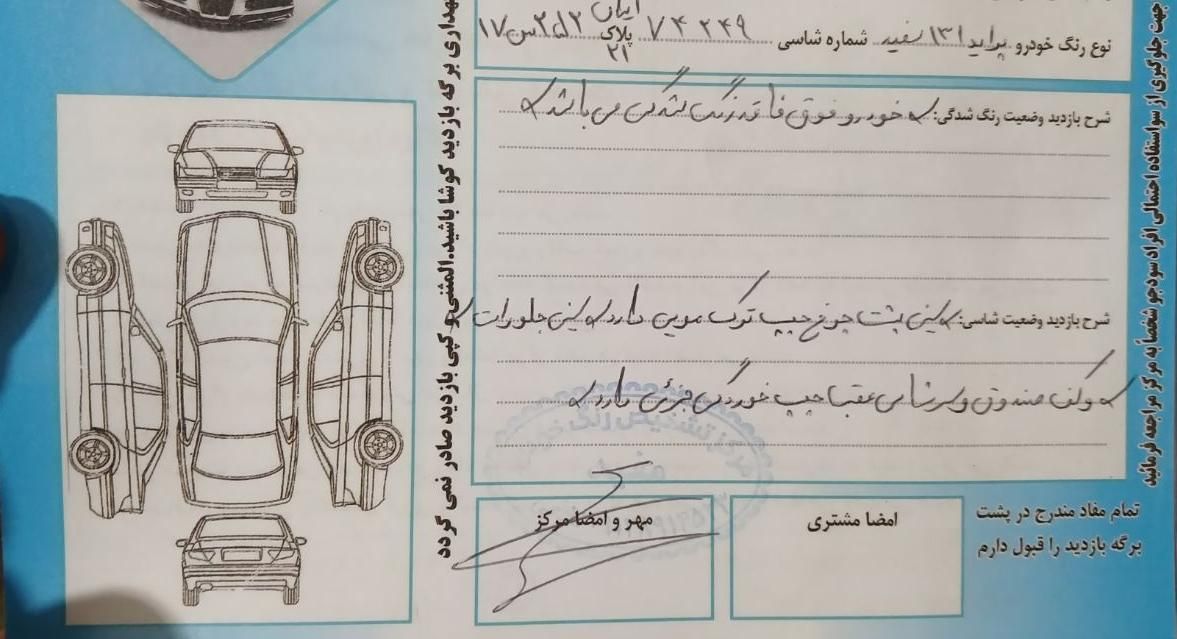 نوع رنگ خودرو پراید ۱۳۱ سفید شماره شاسی ۷۴۲۴۹ پلاک ایران ۲۱
شرح بازدید وضعیت رنگ شدگی: خودرو فوق فاقد رنگ شدگی می باشد
شرح بازدید وضعیت شاسی: سینی پشت چراغ چپ ترک مویی دارد سینی جلو
و کف صندوق و سرشاسی عقب چپ خوردگی جزئی دارد
مرکز تشخیص رنگ خودرو
مهر و امضا مرکز
امضا مشتری
تمام مفاد مندرج در پشت
برگه بازدید را قبول دارم
نگهداری برگه بازدید کوشا باشید.المثنی و کپی بازدید صادر نمی گردد
جهت جلوگیری از سواستفاده احتمالی افراد سودجو شخصا به مرکز مراجعه فرمائید